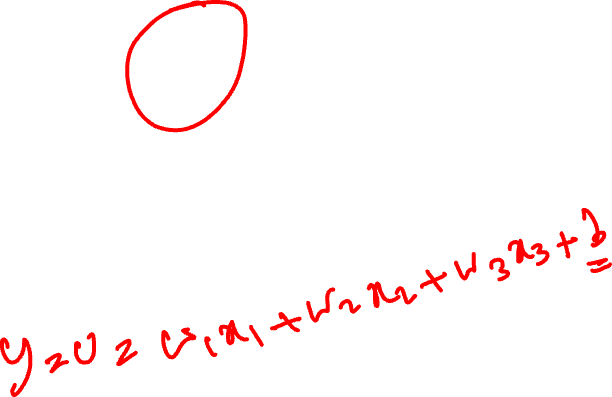 y = v = w₁x₁ + w₂x₂ + w₃x₃ + b